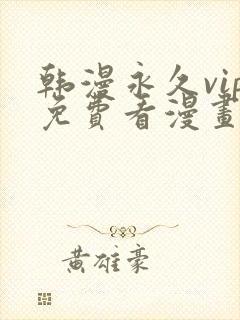 韩漫永久vip
免費看漫畫
黃雄豪